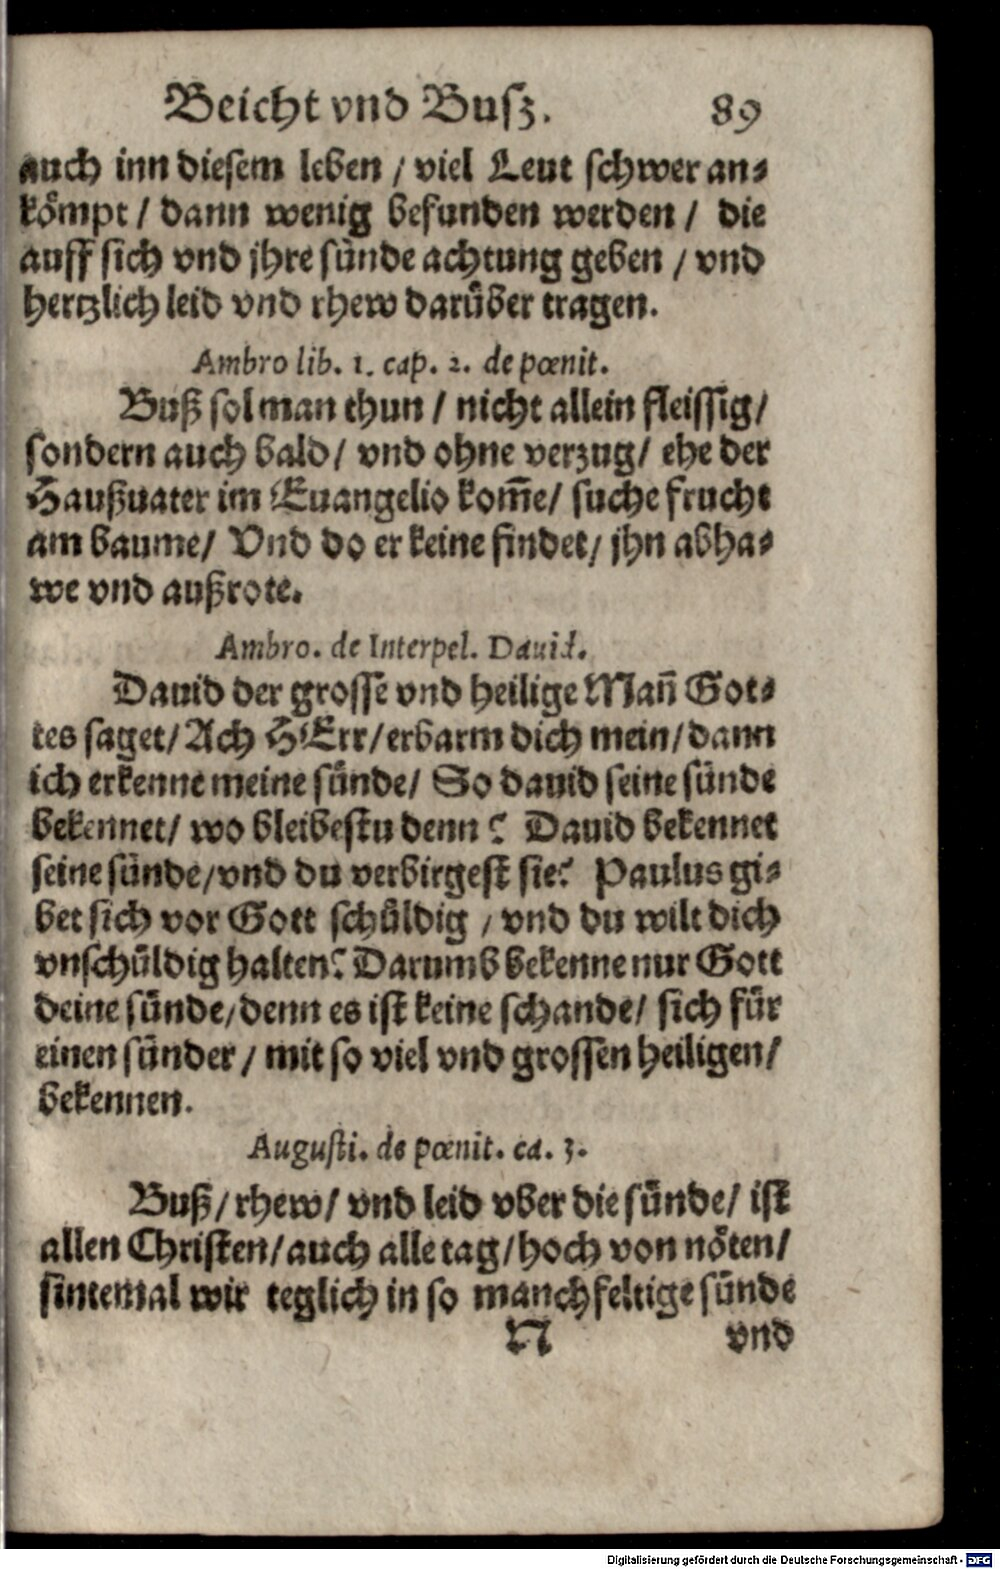 Beicht vnd Busz. 89
auch inn diesem leben / viel Leut schwer an-
kömpt / dann wenig befunden werden / die
auff sich vnd jhre sünde achtung geben / vnd
hertzlich leid vnd rhew darüber tragen.
Ambro lib. 1. cap. 2. de pœnit.
Buß sol man thun / nicht allein fleissig /
sondern auch bald / vnd ohne verzug / ehe der
Haußuater im Euangelio kom̃e / suche frucht
am baume / Vnd do er keine findet / jhn abha-
we vnd außrote.
Ambro. de Interpel. Dauid.
Dauid der grosse vnd heilige Man̄ Got-
tes saget / Ach HErr / erbarm dich mein / dann
ich erkenne meine sünde / So dauid seine sünde
bekennet / wo bleibestu denn? Dauid bekennet
seine sünde / vnd du verbirgest sie? Paulus gi-
bet sich vor Gott schüldig / vnd du wilt dich
vnschüldig halten? Darumb bekenne nur Gott
deine sünde / denn es ist keine schande / sich für
einen sünder / mit so viel vnd grossen heiligen /
bekennen.
Augusti. de pœnit. ca. 3.
Buß / rhew / vnd leid vber die sünde / ist
allen Christen / auch alle tag / hoch von nöten /
sintemal wir teglich in so manchfeltige sünde
N vnd
Digitalisierung gefördert durch die Deutsche Forschungsgemeinschaft - DFG